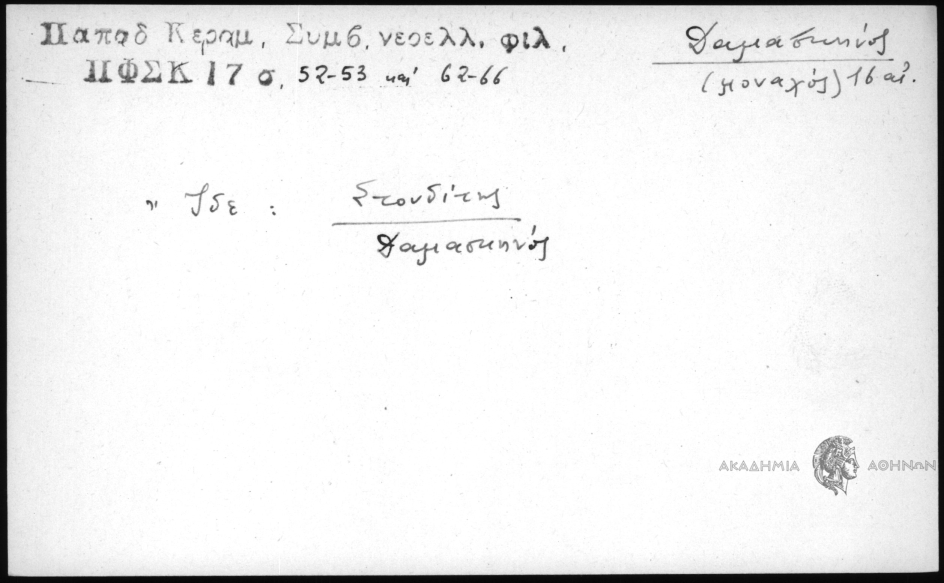 Παπαδ Κεραμ. Συμβ. νεοελλ. φιλ.
ΠΦΣΚ 17 σ. 52-53 και 62-66
Δαμασκηνός
(μοναχός) 16 αι.
" Ίδε : Στουδίτης
Δαμασκηνός
ΑΚΑΔΗΜΙΑ ΑΘΗΝΩΝ